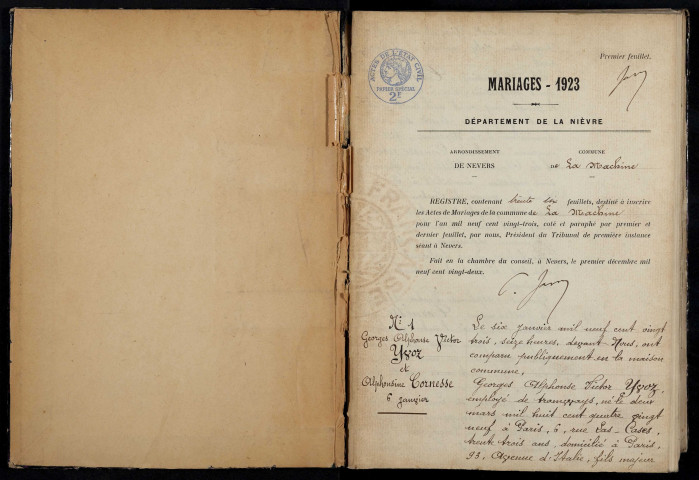 Premier feuillet.
ACTES DE L'ETAT CIVIL
PAPIER SPECIAL
2F
MARIAGES - 1923
DÉPARTEMENT DE LA NIÈVRE
ARRONDISSEMENT
DE NEVERS
COMMUNE
DE La Machine
REGISTRE, contenant trente six feuillets, destiné à inscrire
les Actes de Mariages de la commune de La Machine
pour l'an mil neuf cent vingt-trois, coté et paraphé par premier et
dernier feuillet, par nous, Président du Tribunal de première instance
séant à Nevers.
Fait en la chambre du conseil, à Nevers, le premier décembre mil
neuf cent vingt-deux.
N° 1
Georges Alphonse Victor
Yvoz
et
Alphonsine Cornesse
6 janvier
Le six janvier mil neuf cent vingt
trois, seize heures, devant Nous, ont
comparu publiquement en la maison
commune,
Georges Alphonse Victor Yvoz,
employé de tramways, né le deux
mars mil huit cent quatre vingt
neuf à Paris, 6, rue Las-Cases,
trente trois ans, domicilié à Paris,
93, Avenue d'Italie, fils majeur